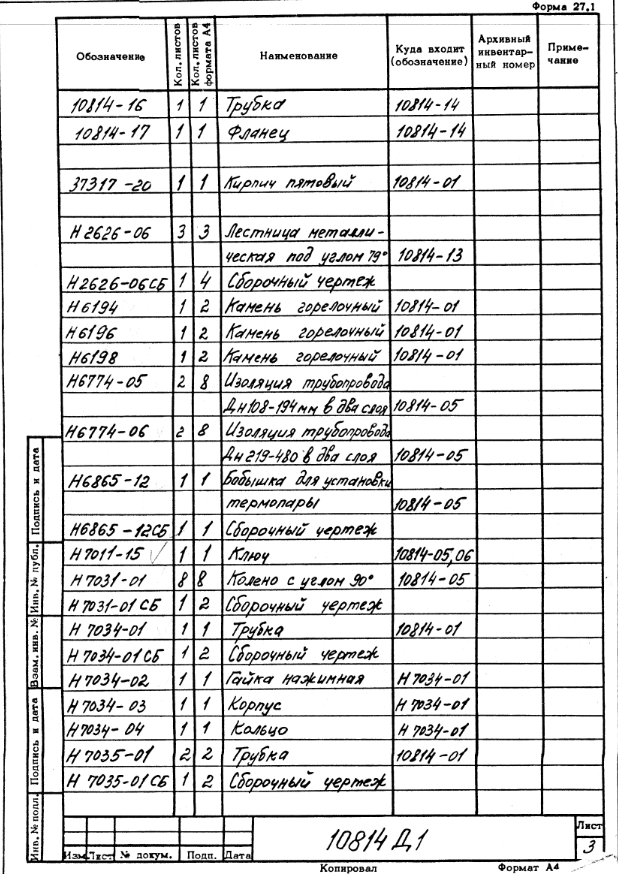 Форма 27.1
Обозначение Кол. листов Кол. листов формата А4 Наименование Куда входит (обозначение) Архивный инвентар- ный номер Приме- чание
10814-16 1 1 Трубка 10814-14
10814-17 1 1 Фланец 10814-14
37317-20 1 1 Кирпич пятовый 10814-01
Н2626-06 3 3 Лестница металли-
ческая под углом 79° 10814-13
Н2626-06СБ 1 4 Сборочный чертеж
Н6194 1 2 Камень горелочный 10814-01
Н6196 1 2 Камень горелочный 10814-01
Н6198 1 2 Камень горелочный 10814-01
Н6774-05 2 8 Изоляция трубопровода
Дн108-194мм в два слоя 10814-05
Н6774-06 2 8 Изоляция трубопровода
Дн219-480 в два слоя 10814-05
Н6865-12 1 1 Бобышка для установки
термопары 10814-05
Н6865-12СБ 1 1 Сборочный чертеж
Н7011-15 1 1 Ключ 10814-05,06
Н7031-01 8 8 Колено с углом 90° 10814-05
Н7031-01СБ 1 2 Сборочный чертеж
Н7034-01 1 1 Трубка 10814-01
Н7034-01СБ 1 2 Сборочный чертеж
Н7034-02 1 1 Гайка нажимная Н7034-01
Н7034-03 1 1 Корпус Н7034-01
Н7034-04 1 1 Кольцо Н7034-01
Н7035-01 2 2 Трубка 10814-01
Н7035-01СБ 1 2 Сборочный чертеж
Подпись и дата
Инв. № дубл.
Взам. инв. №
Подпись и дата
Инв. № подл.
Изм. Лист № докум. Подп. Дата
10814 Д1
Лист
3
Копировал Формат А4